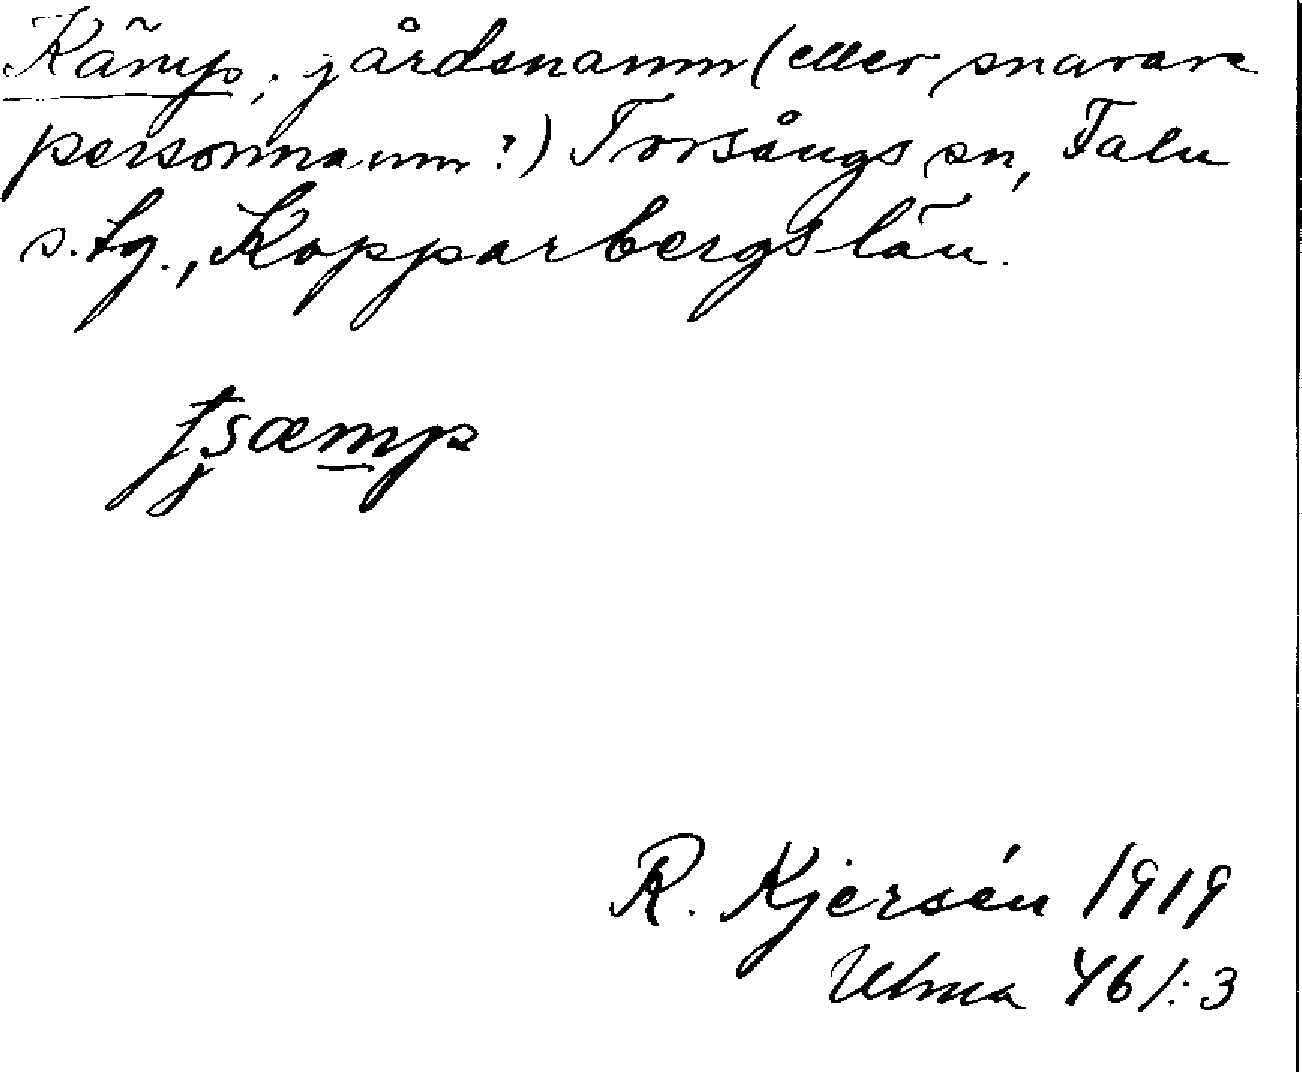 Kämp, gårdsnamn (eller snarare
personnamn?) Torsångs sn, Falu
s. tg., Kopparbergs län.
R. Kjersén 1919
Ulma 461:3